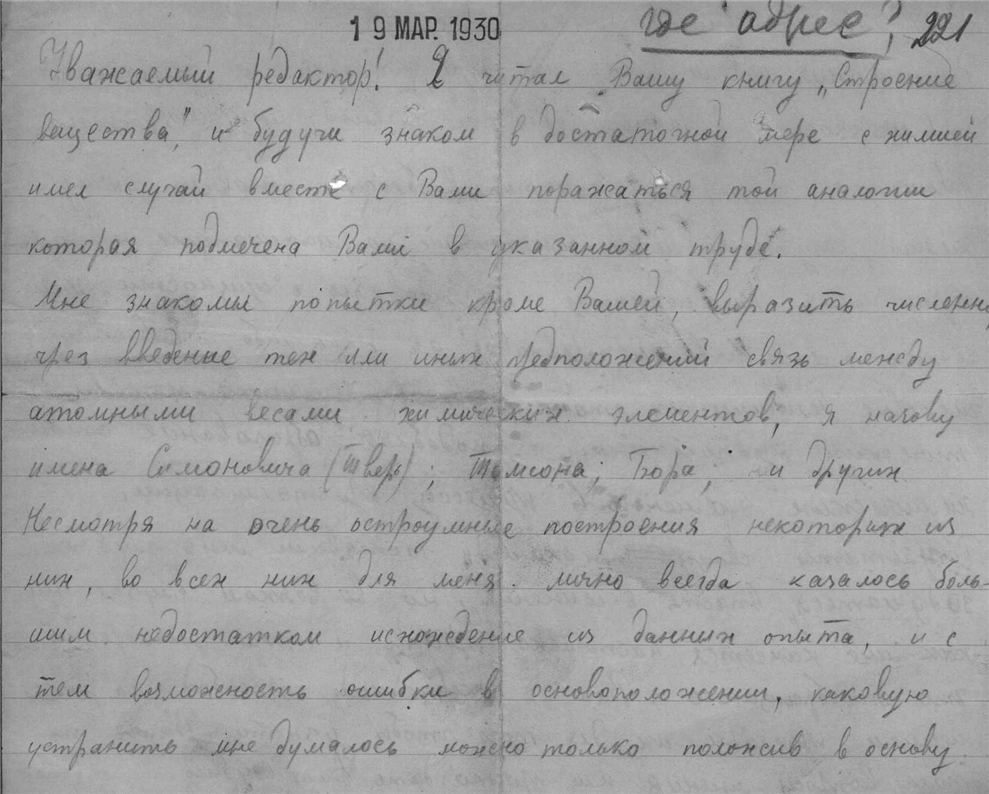 19 МАР. 1930 где адрес? 221
Уважаемый редактор! Я читал Вашу книгу „Строение
вещества", и будучи знаком в достаточной мере с химией
имел случай вместе с Вами поражаться той аналогии
которая подмечена Вами в указанном труде.
Мне знакомы попытки кроме Вашей, выразить численно,
чрез введение тех или иных предположений связь между
атомными весами химических элементов, я назову
имена Симоновича (Тверь); Томсона; Бора; и других
Несмотря на очень остроумные построения некоторых из
них, во всех них для меня лично всегда казалось боль-
шим недостатком исхождение из данных опыта, и с
тем возможность ошибки в основоположении, каковую
устранить мне думалось можно только положив в основу